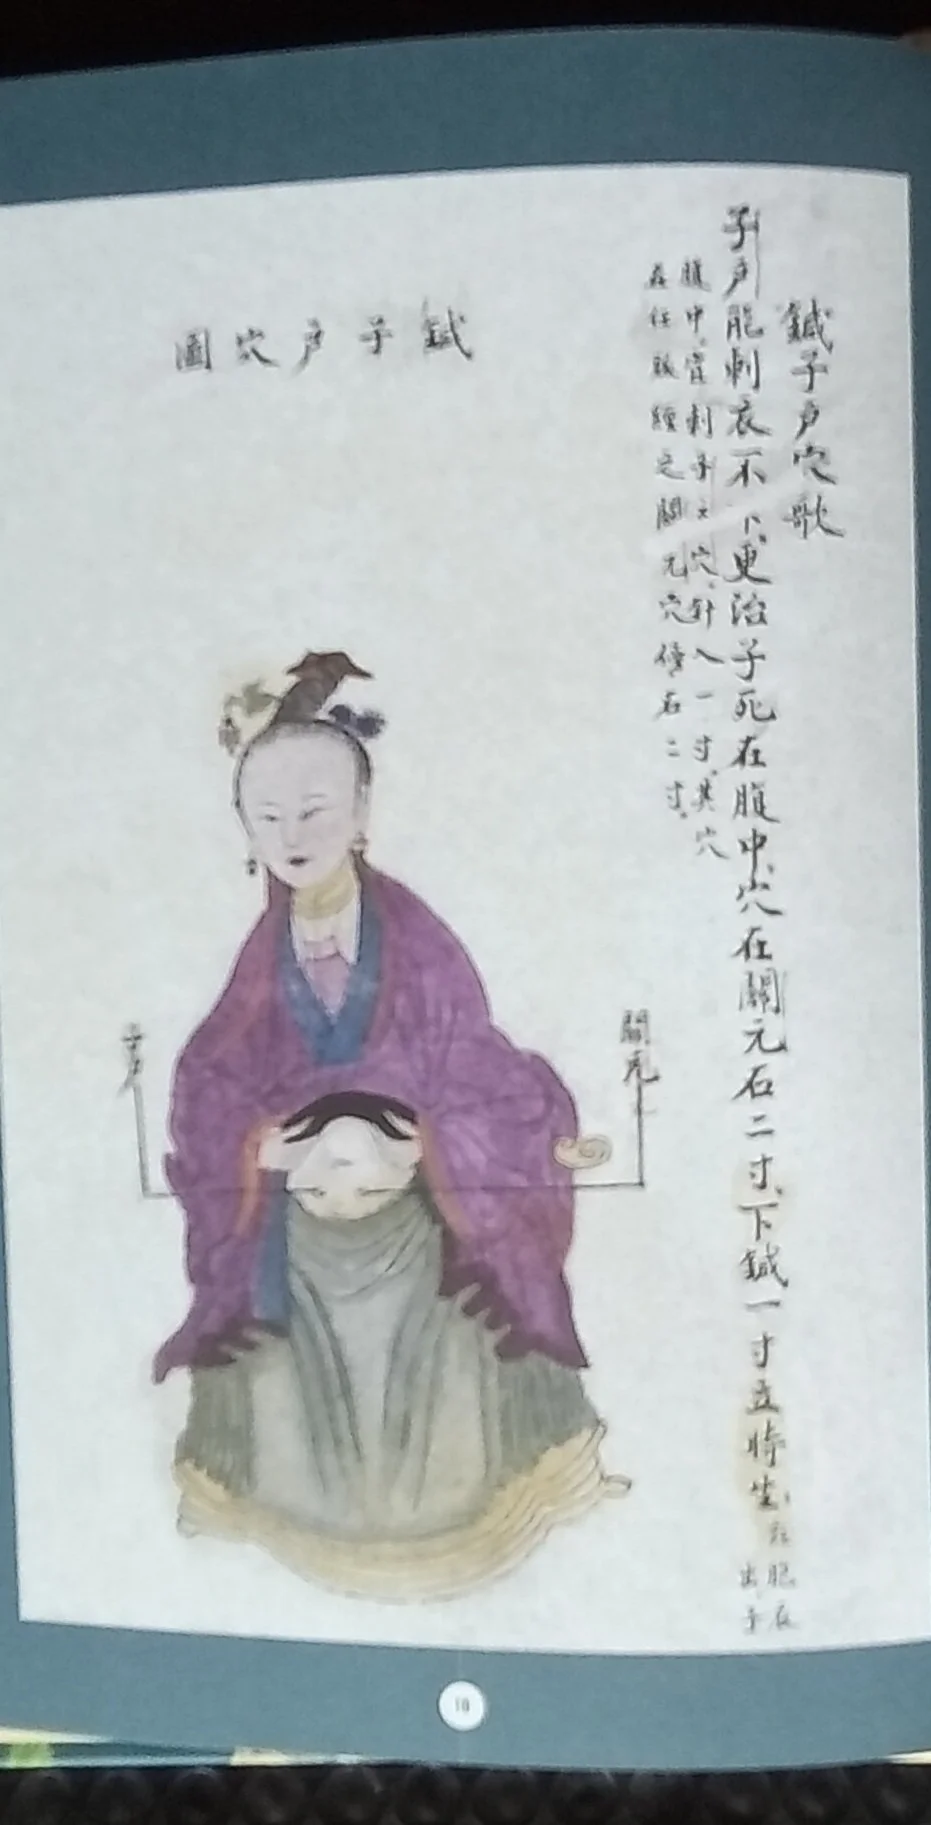 鍼子户穴歌
子户能刺衣不下、更治子死在腹中、穴在關元石二寸、下鍼一寸立時生、
胞衣
出子
腹中、宜刺子户穴、針入一寸、其穴
在任脈經之關元穴傍右二寸、
鍼子户穴圖
關元
子户